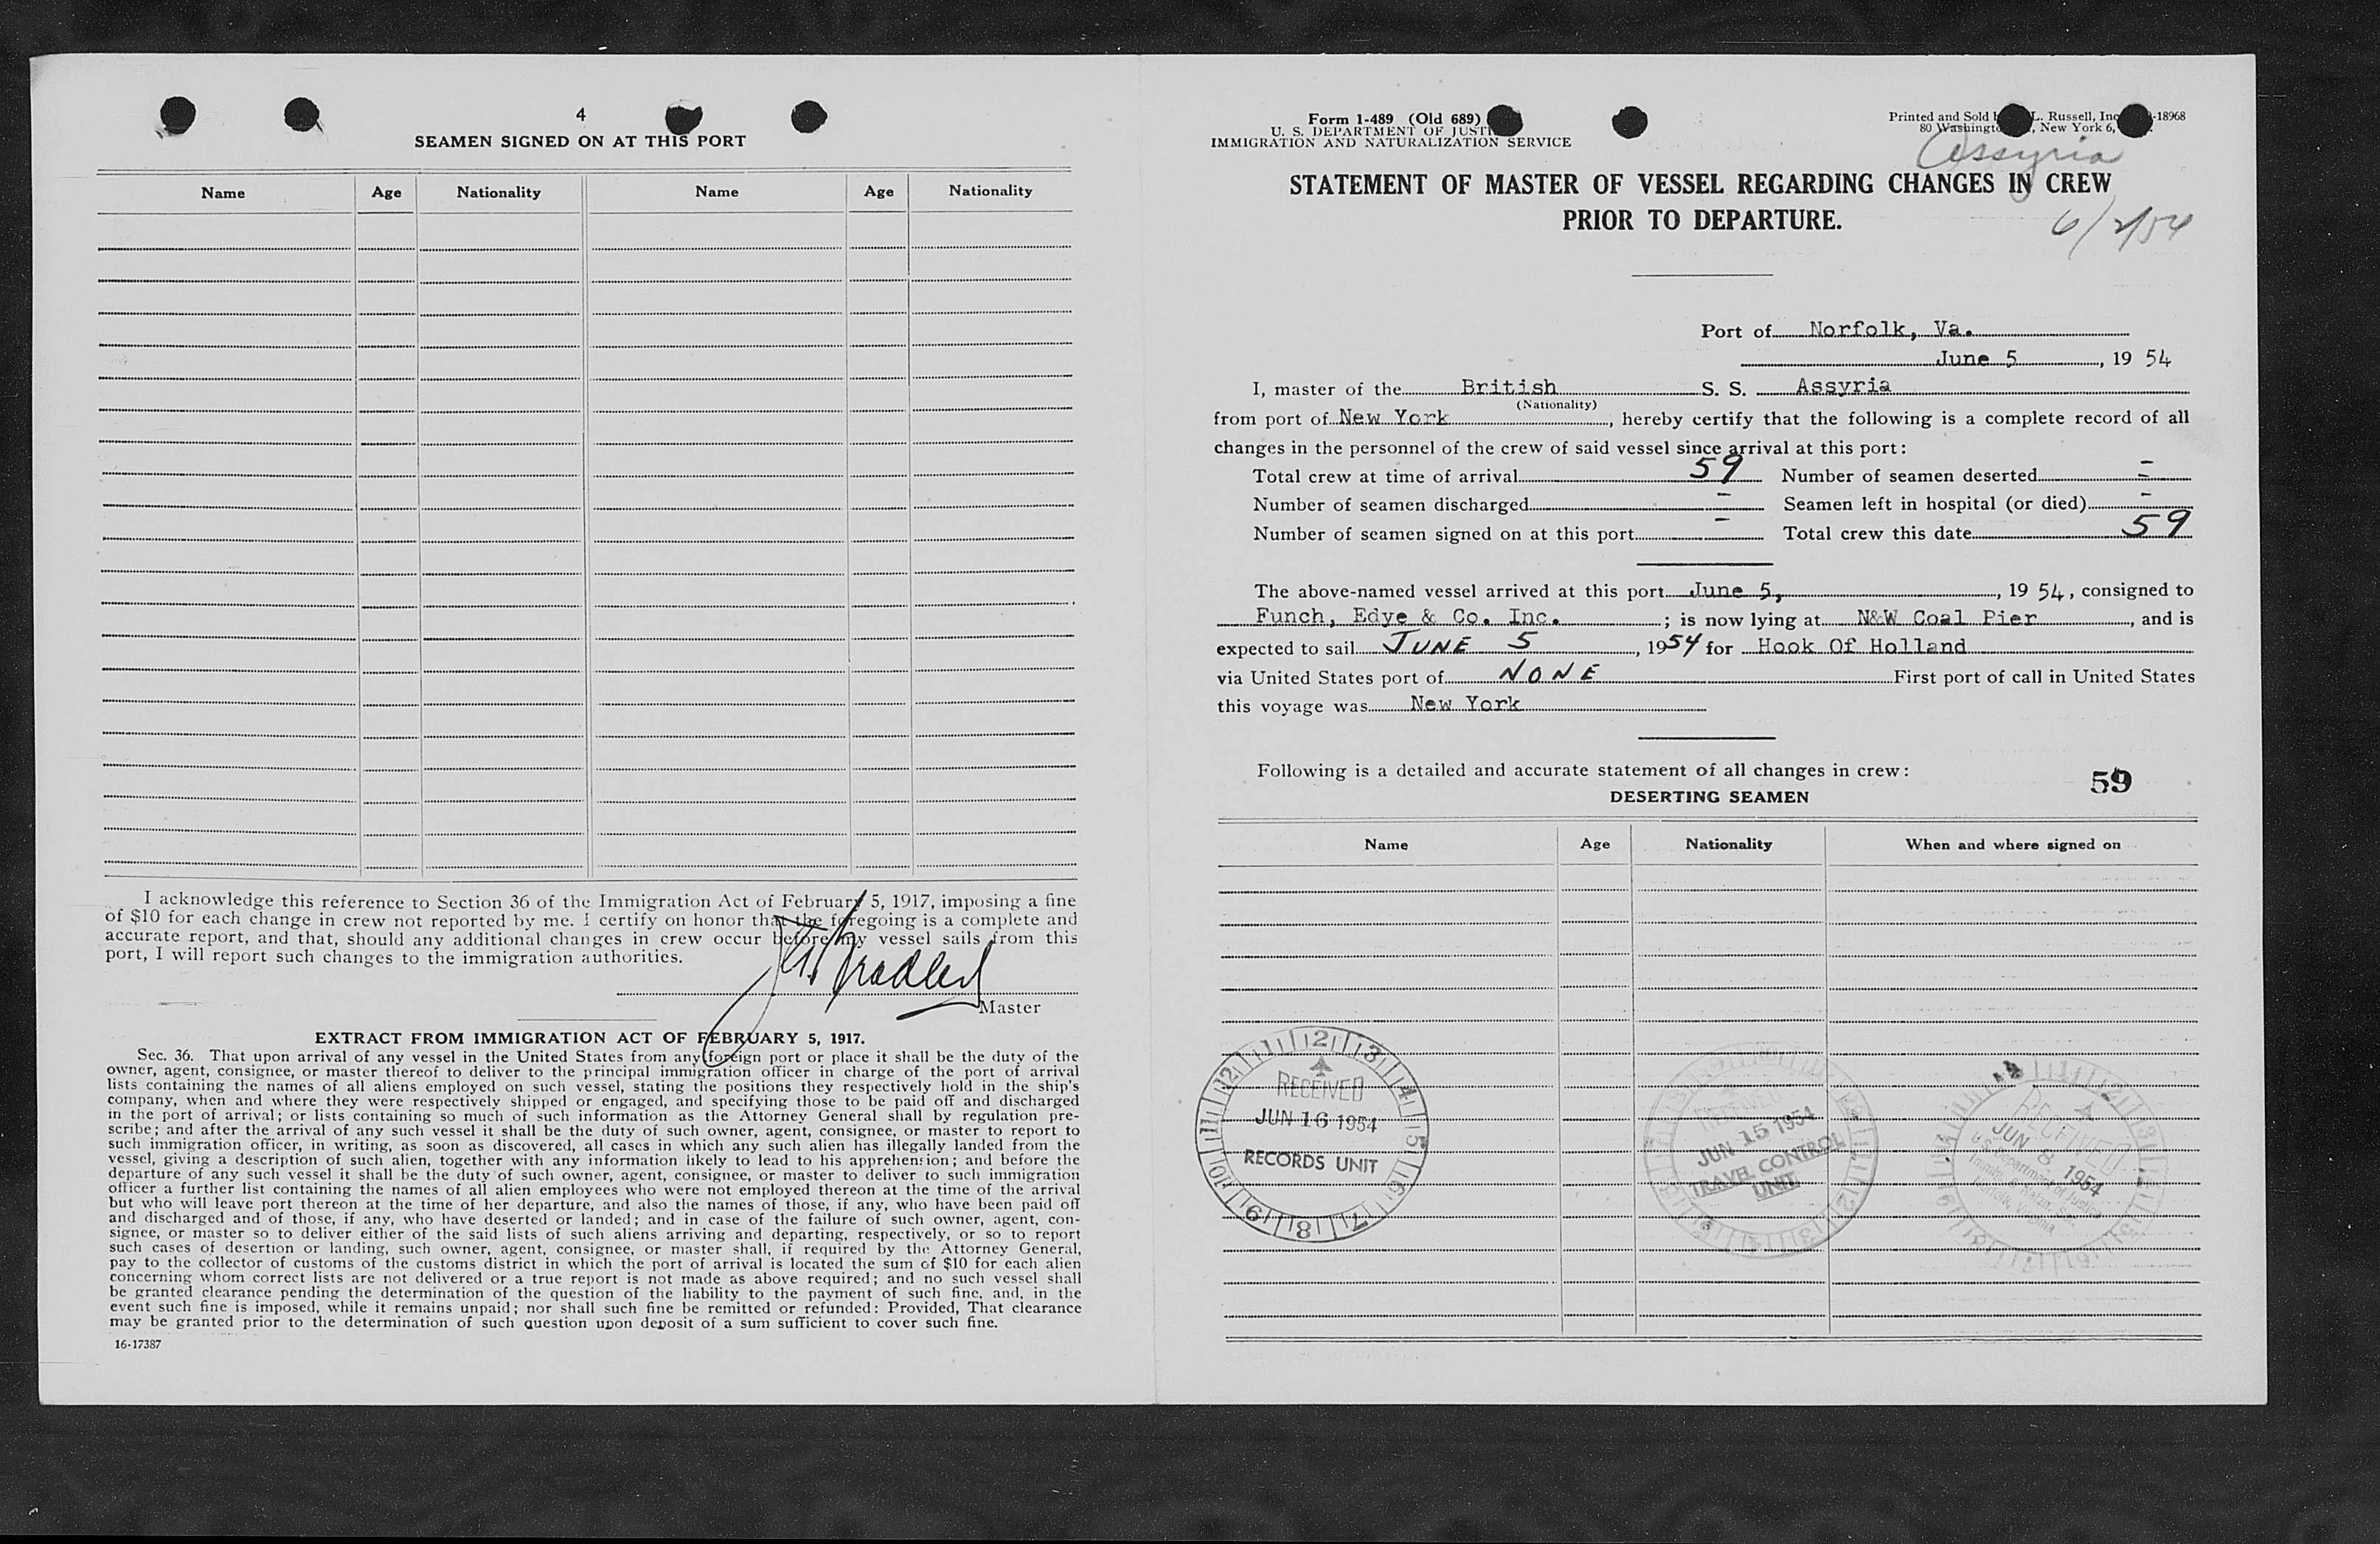 4
SEAMEN SIGNED ON AT THIS PORT
Name Age Nationality Name Age Nationality
I acknowledge this reference to Section 36 of the Immigration Act of February 5, 1917, imposing a fine
of $10 for each change in crew not reported by me. I certify on honor that the foregoing is a complete and
accurate report, and that, should any additional changes in crew occur before my vessel sails from this
port, I will report such changes to the immigration authorities.
Bradley
Master
EXTRACT FROM IMMIGRATION ACT OF FEBRUARY 5, 1917.
Sec. 36. That upon arrival of any vessel in the United States from any foreign port or place it shall be the duty of the
owner, agent, consignee, or master thereof to deliver to the principal immigration officer in charge of the port of arrival
lists containing the names of all aliens employed on such vessel, stating the positions they respectively hold in the ship's
company, when and where they were respectively shipped or engaged, and specifying those to be paid off and discharged
in the port of arrival; or lists containing so much of such information as the Attorney General shall by regulation pre-
scribe; and after the arrival of any such vessel it shall be the duty of such owner, agent, consignee, or master to report to
such immigration officer, in writing, as soon as discovered, all cases in which any such alien has illegally landed from the
vessel, giving a description of such alien, together with any information likely to lead to his apprehension; and before the
departure of any such vessel it shall be the duty of such owner, agent, consignee, or master to deliver to such immigration
officer a further list containing the names of all alien employees who were not employed thereon at the time of the arrival
but who will leave port thereon at the time of her departure, and also the names of those, if any, who have been paid off
and discharged and of those, if any, who have deserted or landed; and in case of the failure of such owner, agent, con-
signee, or master so to deliver either of the said lists of such aliens arriving and departing, respectively, or so to report
such cases of desertion or landing, such owner, agent, consignee, or master shall, if required by the Attorney General,
pay to the collector of customs of the customs district in which the port of arrival is located the sum of $10 for each alien
concerning whom correct lists are not delivered or a true report is not made as above required; and no such vessel shall
be granted clearance pending the determination of the question of the liability to the payment of such fine, and, in the
event such fine is imposed, while it remains unpaid; nor shall such fine be remitted or refunded: Provided, That clearance
may be granted prior to the determination of such question upon deposit of a sum sufficient to cover such fine.
16-17387
Form 1-489 (Old 689)
U. S. DEPARTMENT OF JUSTI
IMMIGRATION AND NATURALIZATION SERVICE
Printed and Sold L. Russell, Inc -18968
80 Washingt , New York 6,
Assyria
STATEMENT OF MASTER OF VESSEL REGARDING CHANGES IN CREW
PRIOR TO DEPARTURE.
6/2/54
Port of Norfolk, Va.
June 5, 19 54
I, master of the British S. S. Assyria
(Nationality)
from port of New York, hereby certify that the following is a complete record of all
changes in the personnel of the crew of said vessel since arrival at this port:
Total crew at time of arrival 59 Number of seamen deserted -
Number of seamen discharged - Seamen left in hospital (or died) -
Number of seamen signed on at this port - Total crew this date 59
The above-named vessel arrived at this port June 5, , 19 54, consigned to
Funch, Edye & Co. Inc. ; is now lying at N&W Coal Pier, and is
expected to sail JUNE 5, 1954 for Hook Of Holland
via United States port of NONE First port of call in United States
this voyage was New York
Following is a detailed and accurate statement of all changes in crew:
59
DESERTING SEAMEN
Name Age Nationality When and where signed on
RECEIVED
JUN 16 1954
RECORDS UNIT
JUN 15 1954
TRAVEL CONTROL
UNIT
RECEIVED
JUN 8 1954
U.S. Department of Justice
Immig. & Natzn. Ser.
Norfolk, Virginia